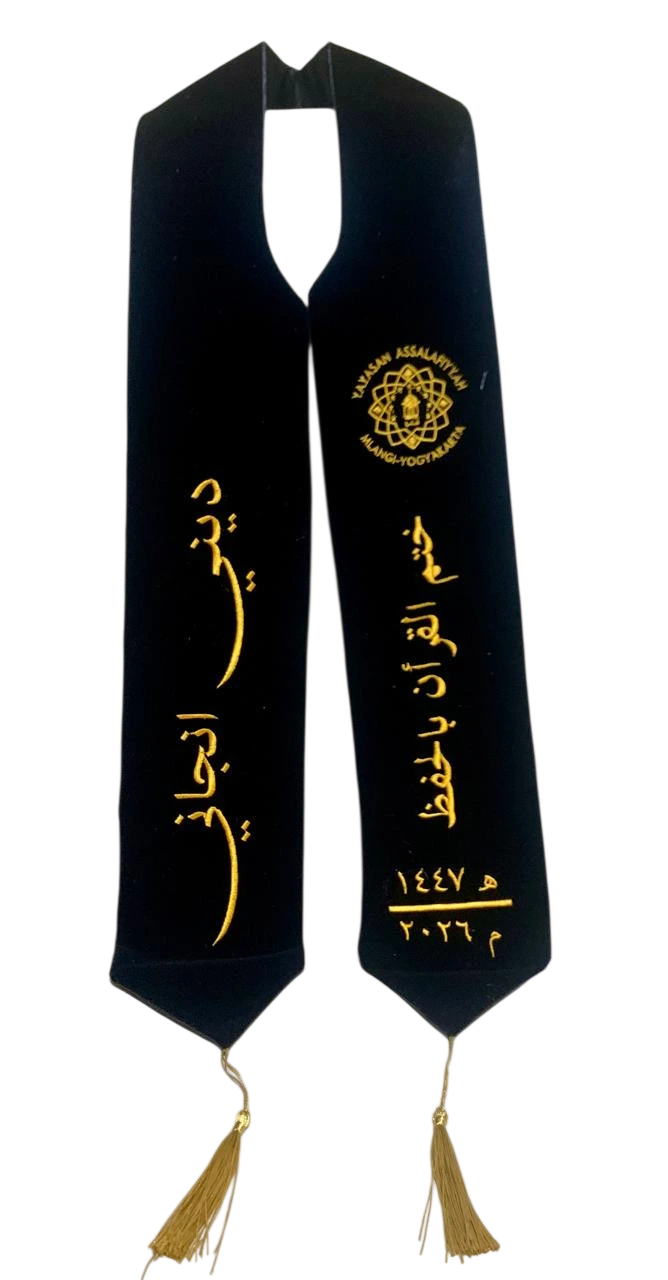 YAYASAN ASSALAFIYYAH
MLANGI-YOGYAKARTA
ختم القرأن بالحفظ
١٤٤٧ ه
٢٠٢٦ م
ديني انجاني